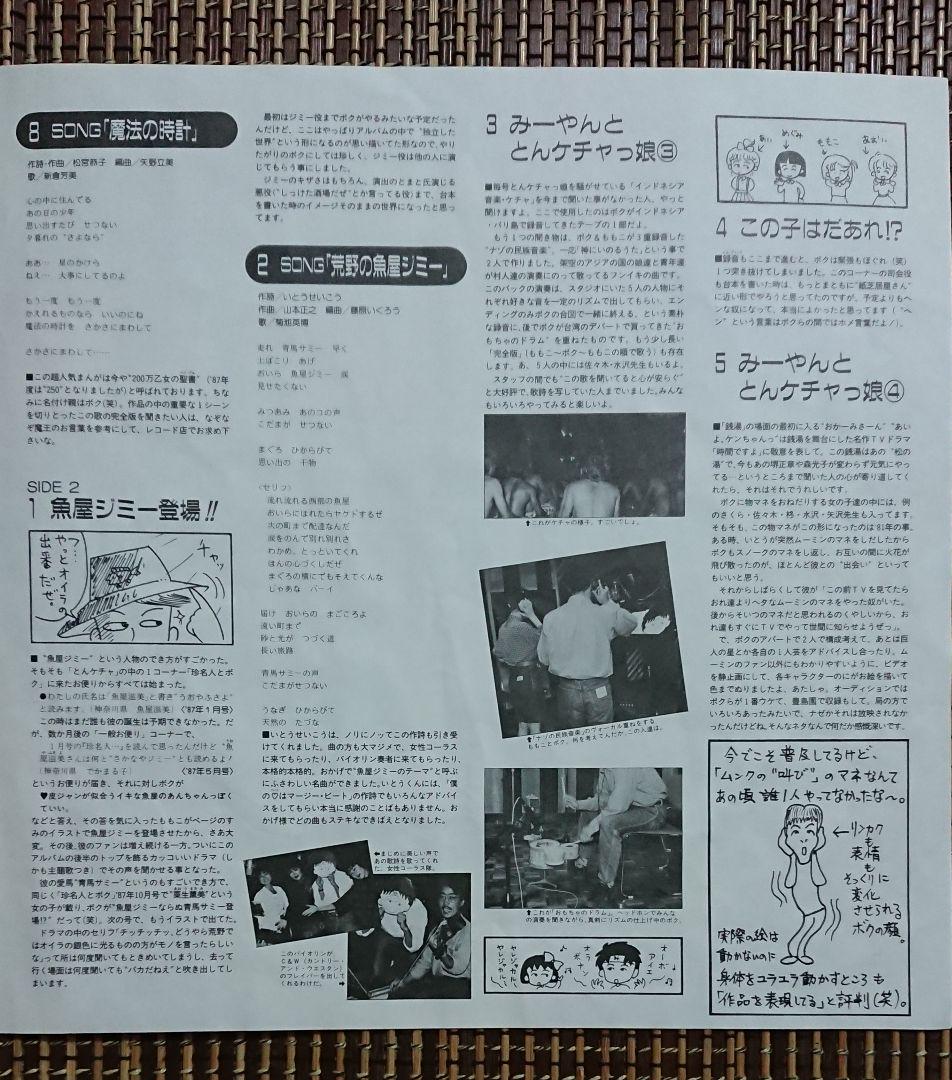 8 SONG「魔法の時計」
作詩・作曲／松宮恭子 編曲／矢野立美
歌／新倉芳美
心の中に住んでる
あの日の少年
思い出すたび せつない
夕暮れの“さよなら”
ああ… 星のかけら
ねえ… 大事にしてるのよ
もう一度 もう一度
かえれるものなら いいのにね
魔法の時計を さかさにまわして
さかさにまわして……
■この超人気まんがは今や“200万乙女の聖書”（'87年
度は“250”となりましたが）と呼ばれております。ちな
みに名付け親はボク(笑)。作品の中の重要な1シーン
を切りとったこの歌の完全版を聞きたい人は、なぞな
ぞ魔王のお言葉を参考にして、レコード店でお求め下
さいな。
SIDE 2
1 魚屋ジミー登場!!
フッ…
やっとオイラの
出番だぜ。
チャッ
■“魚屋ジミー”という人物のでき方がすごかった。
そもそも「とんケチャ」の中の1コーナー「珍名人とボ
ク」に来たお便りからすべては始まった。
●わたしの氏名は「魚屋滋美」と書き“うおやふさよ”
と読みます。（神奈川県 魚屋滋美）（'87年1月号）
この時はまだ誰も彼の誕生は予期できなかった。だ
が、数か月後の「一般お便り」コーナーで、
1月号の「珍名人…」を読んで思ったんだけど“魚
屋滋美さんは何と“さかなやジミー”とも読めるよ！
（神奈川県 でかまる子）（'87年5月号）
というお便りが届き、それに対しボクが
♥皮ジャンが似合うイキな魚屋のあんちゃんっぽく
ていい。
などと答え、その答を気に入ったももこがページのす
みのイラストで魚屋ジミーを登場させたから、さあ大
変。その後、彼のファンは増え続ける一方。ついにこの
アルバムの後半のトップを飾るカッコいいドラマ（し
かも主題歌つき）でその声を聞かせる事となった。
彼の愛馬“青馬サミー”というのもすごいでき方で、
同じく「珍名人とボク」'87年10月号で“粟生蘭美”という
女の子が載り、ボクが“魚屋ジミーならぬ青馬サミー登
場!?”だって(笑)。次の号で、もうイラストで出てた。
ドラマの中のセリフ「チッチッチッ、どうやら荒野で
はオイラの銀色に光るものの方がモノを言ったらしい
な」って所は何度聞いてもときめいてしまうし、去って
行く場面は何度聞いても“バカだねえ”と吹き出してし
まいます。
最初はジミー役までボクがやるみたいな予定だっ
たんだけど、ここはやっぱりアルバムの中で“独立した
世界”という形になるのが思い描いてた形なので、やり
たがりのボクにしては珍しく、ジミー役は他の人に演
じてもらう事にしました。
ジミーのキザさはもちろん、演出のとまと氏演じる
悪役（“しっけた酒場だぜ”とか言ってる役）まで、台本
を書いた時のイメージそのままの世界になったと思っ
てます。
2 SONG「荒野の魚屋ジミー」
作詩／いとうせいこう
作曲／山本正之 編曲／藤原いくろう
歌／菊池英博
走れ 青馬サミー 早く
土ぼこり あげ
おいら 魚屋ジミー 涙
見せたくない
みつあみ あのコの声
こだまが せつない
まぐろ ひからびて
思い出の 干物
〈セリフ〉
流れ流れる西部の魚屋
おいらにほれたらヤケドするぜ
次の町まで配達なんだ
涙をのんで別れ別れさ
わかめ。とっといてくれ
ほんの心づくしだぜ
まぐろの横にでもそえてくんな
じゃあな バーイ
届け おいらの まごころよ
遠い町まで
砂と光が つづく道
長い旅路
青馬サミーの声
こだまがせつない
うなぎ ひからびて
天然の たづな
■いとうせいこうは、ノリにノッてこの作詩も引き受
けてくれました。曲の方も大マジメで、女性コーラス
に来てもらったり、バイオリン奏者に来てもらったり、
本格的本格的。おかげで“魚屋ジミーのテーマ”と呼ぶ
にふさわしい名曲ができました。いとうくんには、「僕
の♡はマージー・ビート」の作詩でもいろんなアドバイ
スをしてもらい本当に感謝のことばもありません。お
かげ様でどの曲もステキなできばえとなりました。
⬅まじめに美しい声で
あの歌詩を歌ってくれ
た、女性コーラス隊。
このバイオリンが
C＆W（カントリー・
アンド・ウエスタン）
のフレイバーを出して
くれるわけだ。➡
3 みーやんと
とんケチャっ娘③
■毎号とんケチャっ娘を騒がせている「インドネシア
音楽・ケチャ」を今まで聞いた事がなかった人、やっと
聞けますよ。ここで使用したのはボクがインドネシア
・バリ島で録音してきたテープの1部だよ。
もう1つの聞き物は、ボク&ももこが3重録音した
“ナゾの民族音楽”。一応「神にいのるうた」という事で
2人で作りました。架空のアジアの国の娘達と青年達
が村人達の演奏にのって歌ってるフンイキの曲です。
このバックの演奏は、スタジオにいた5人の人物にそ
れぞれ好きな音を一定のリズムで出してもらい、エン
ディングのみボクの合図で一緒に終える、という素朴
な録音に、後でボクが台湾のデパートで買ってきた“お
もちゃのドラム”を重ねたものです。もう少し長い
「完全版」（ももこ〜ボク〜ももこの順で歌う）も存在
します。あ、5人の中には佐々木・水沢先生もいるよ。
スタッフの間でも“この歌を聞いてると心が安らぐ”
と大好評で、歌詩を写していた人までいました。みんな
もいろいろやってみると楽しいよ。
⬆これがケチャの様子。すごいでしょ。
⬆「ナゾの民族音楽」のヴォーカル重ねをする
ももことボク。何を考えてんだか、この人達は。
⬆これが「おもちゃのドラム」。ヘッドホンでみんな
の演奏を聞きながら、真剣にリズムの仕上げ中のボク。
あい
めぐみ
ももこ
あおい
4 この子はだあれ!?
■録音もここまで進むと、ボクは緊張もほぐれ（笑）
1つ突き抜けてしまいました。このコーナーの司会役
も台本を書いた時は、もっとまともに“紙芝居屋さん”
に近い形でやろうと思ってたのですが、予定よりもヘ
ンな奴になって、本当によかったと思ってます（“ヘ
ン”という言葉はボクらの間ではホメ言葉だよ！）。
5 みーやんと
とんケチャっ娘④
■「銭湯」の場面の最初に入る“おかーみさーん”“あい
よ、ケンちゃん”っは銭湯を舞台にした名作TVドラマ
「時間ですよ」に敬意を表して。この銭湯はあの“松の
湯”で、今もあの堺正章や森光子が変わらず元気にやっ
てる…というところまで聞いた人の心が寄り道してく
れたら、それはそれでうれしいです。
ボクに物マネをおねだりする女の子達の中には、例
のさくら・佐々木・柊・水沢・矢沢先生も入ってます。
そもそも、この物マネがこの形になったのは'81年の事。
ある時、いとうが突然ムーミンのマネをしだしたから
ボクもスノークのマネをし返し、お互いの間に火花が
飛び散ったのが、ほとんど彼との“出会い”といって
もいいと思う。
それからしばらくして彼が「この前TVを見てたら
おれ達よりヘタなムーミンのマネをやった奴がいた。
後からそいつのマネだと思われるのくやしいから、お
れ達もすぐにTVでやって世間に知らせようぜっ」。
で、ボクのアパートで2人で構成考えて、あとは巨
人の星とか各自の1人芸をアドバイスし合ったり、ム
ーミンのファン以外にもわかりやすいように、ビデオ
を静止画にして、各キャラクターのにがお絵を描いて
色までぬりましたよ、あたしゃ。オーディションでは
ボクらが1番ウケて、豊島園で収録もして、局の方で
いろいろあったみたいで、ナゼかそれは放映されなか
ったんだけどね。そんなネタなんで何だか感慨深いです。
今でこそ普及してるけど、
「ムンクの“叫び”」のマネなんて
あの頃、誰1人やってなかったな〜。
←リンカク
も
表情
も
そっくりに
変化
させられる
ボクの顔。
実際の絵は
動かないのに
身体をユラユラ動かすところも
「作品を表現してる」と評判(笑)。